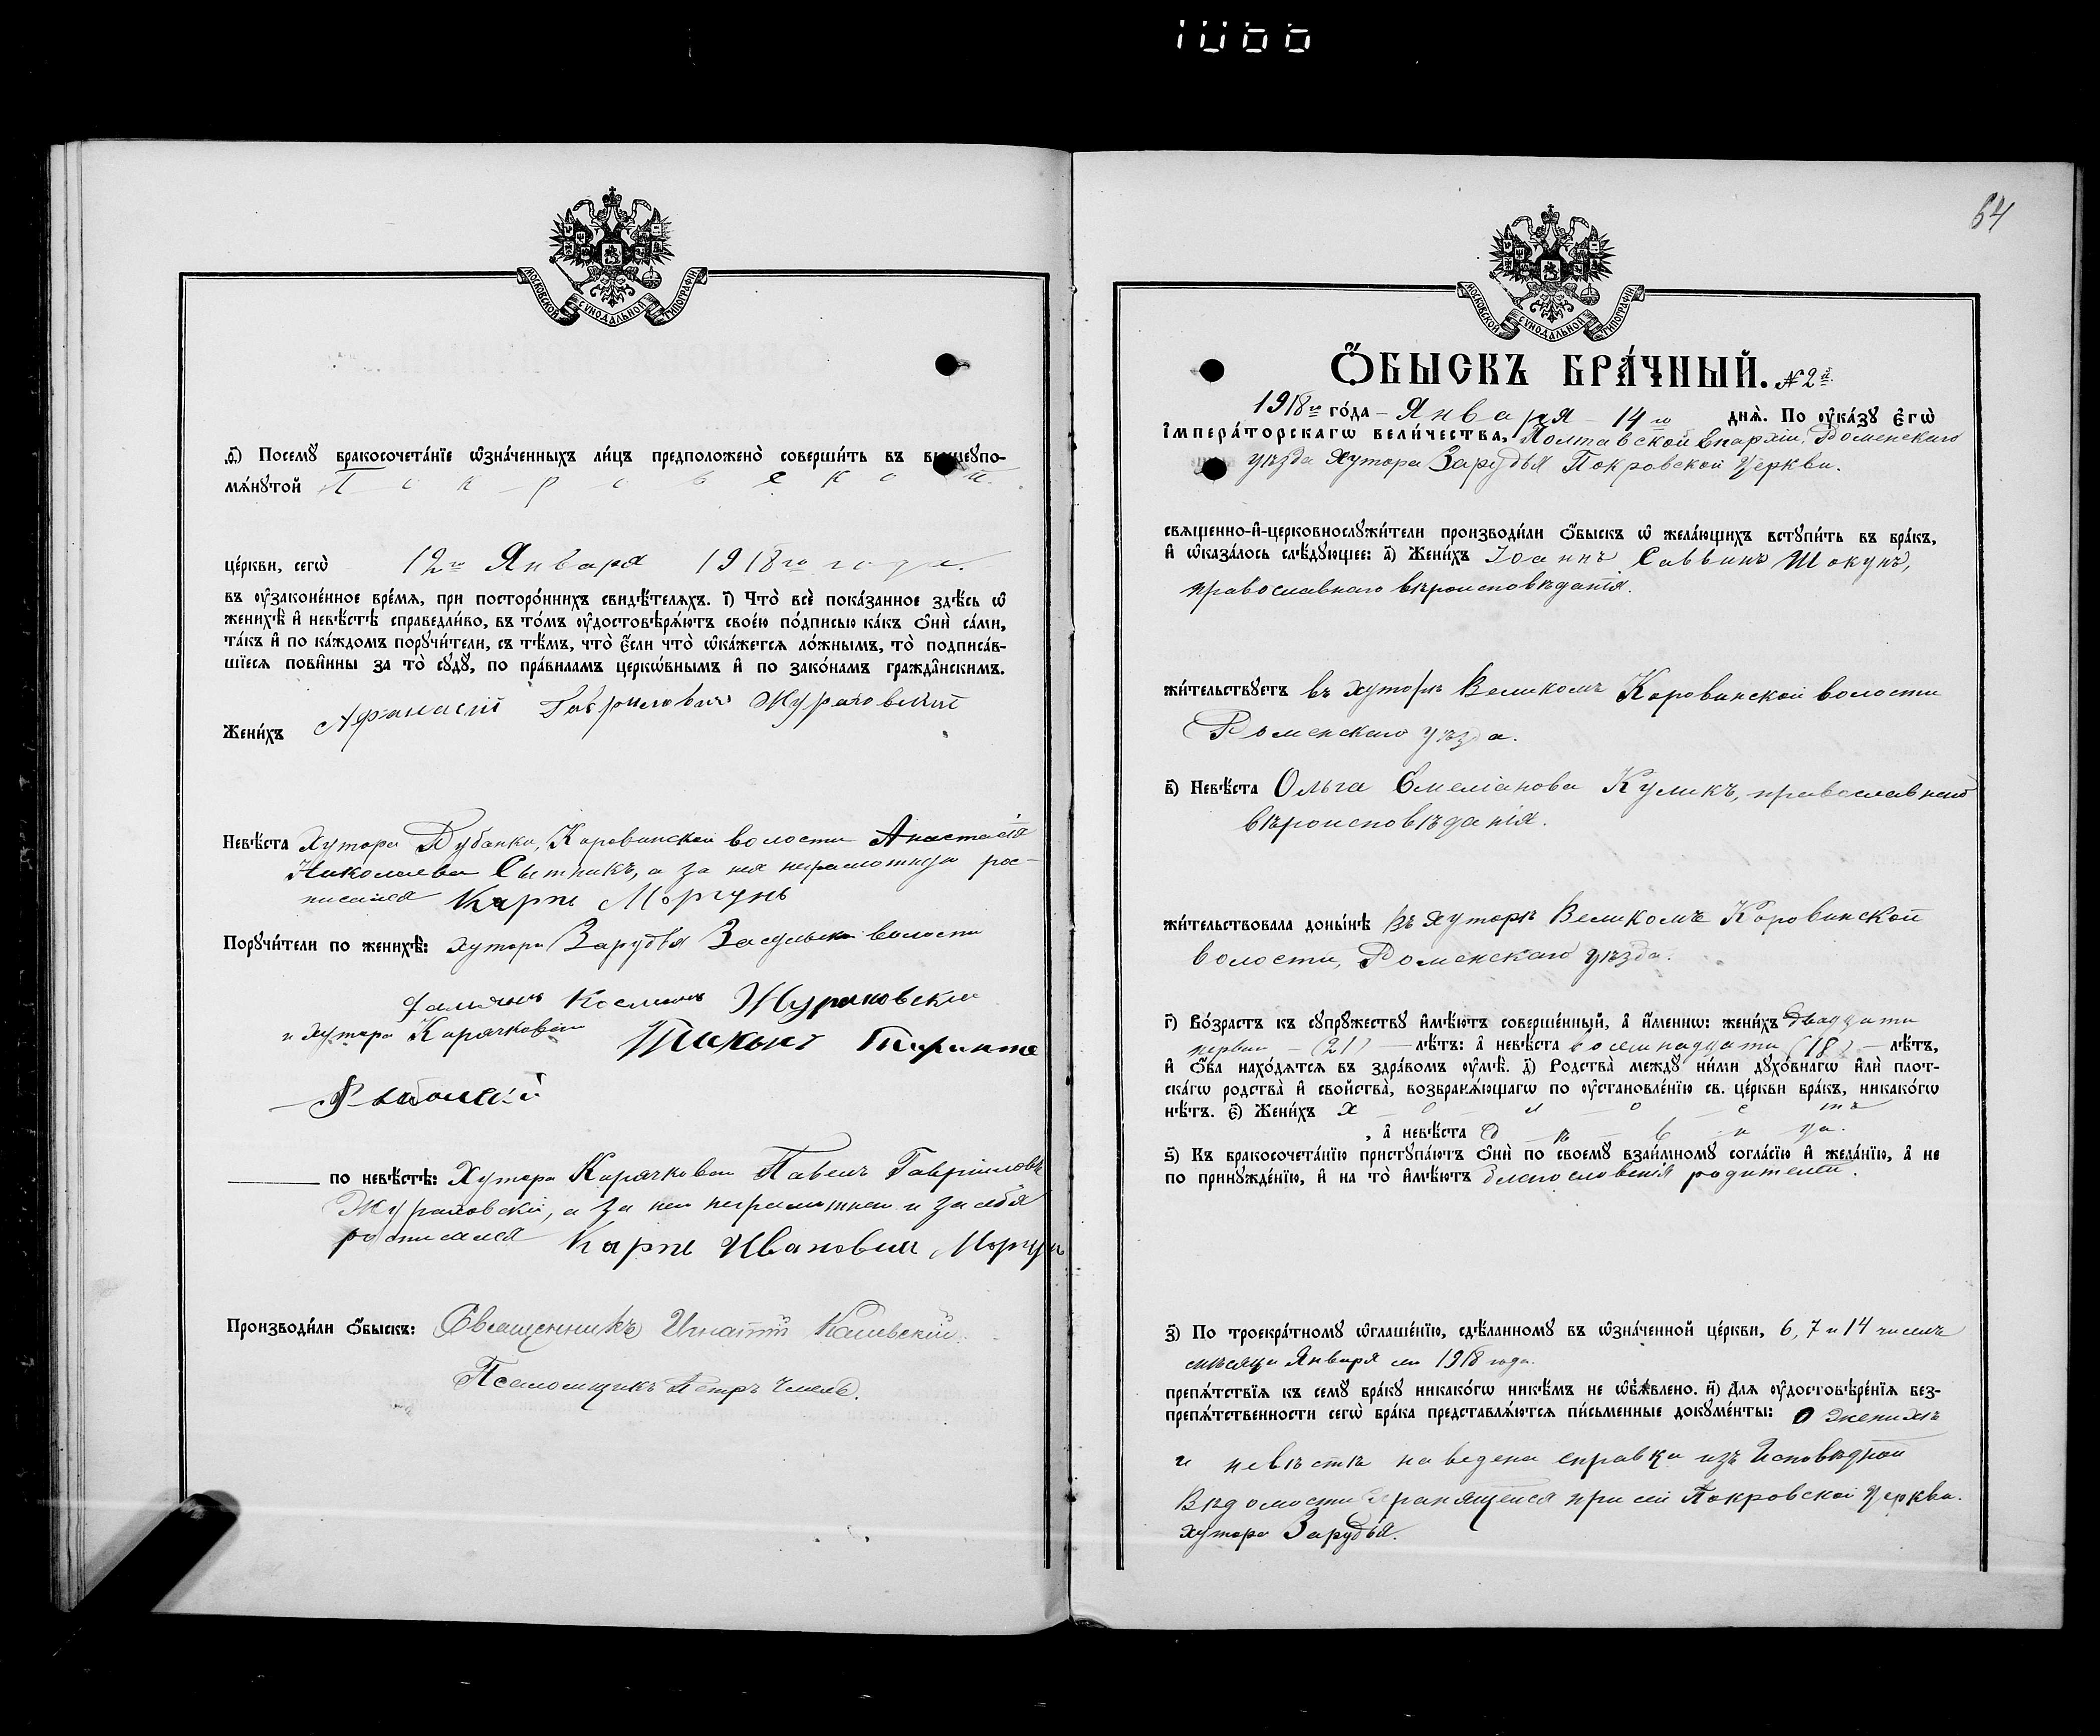 1066
МОСКОВСКОЙ СѴНОДАЛЬНОЙ ТИПОГРАФІИ
Посемꙋ̀ бракосочета́нїе ѡ҆зна́ченныхъ ли́цъ предположено̀ соверши́ть въ вышеꙋпо-
мѧ́нꙋтой Покровской
це́ркви, сегѡ̀ 12го Января 1918го года.
въ ᲂу҆законе́нное вре́мѧ, при посторо́ннихъ свидѣ́телѧхъ. і҃) Что̀ всѐ пока́занное здѣ́сь ѡ҆
женихѣ̀ и҆ невѣ́стѣ справедли́во, въ то́мъ ᲂу҆достовѣрѧ́ютъ свое́ю по́дписью ка́къ ѻ҆нѝ са́ми,
та́къ и҆ по ка́ждомъ порꙋчи́тели, съ тѣ́мъ, что̀ є҆́сли что̀ ѡ҆ка́жетсѧ ло́жнымъ, то̀ подписа́в-
шїесѧ пови́нны за то̀ сꙋдꙋ̀, по пра́виламъ церкѡ́внымъ и҆ по зако́намъ гражда́нскимъ.
Жени́хъ Афанасій Гавриловичъ Жураховскій
Невѣ́ста Хутора Дубанки, Коровинской волости Анастасія
Николаева Сытникъ, а за нея неграмотную рос-
писался Карпъ Моргунь
Порꙋчи́тели по женихѣ̀: хутора Зарудья Засульской волости
Косминъ Жураховскій
и хутора Карячковой Тихонъ
по невѣ́стѣ: Хутора Карячковой Павелъ Гавріиловъ
Жураховскій, а за него неграмотнаго и за себя
росписался Карпъ Ивановичъ Моргунъ
Производи́ли ѻ҆́быскъ: Священникъ Игнатій
Псаломщикъ Петръ
64
МОСКОВСКОЙ СѴНОДАЛЬНОЙ ТИПОГРАФІИ
Ѻ҆́БЫСКЪ БРА́ЧНЫЙ. № 2й.
1918го го́да Января 14го днѧ̀. По ᲂу҆ка́зꙋ Є҆гѡ̀
І҆мпера́торскагѡ вели́чества, Полтавской Епархіи, Роменскаго
уѣзда хутора Зарудья Покровской Церкви.
свѧщенно-и҆-церковнослꙋжи́тели производи́ли ѻ҆́быскъ ѡ҆ жела́ющихъ вступи́ть въ бра́къ,
и҆ ѡ҆каза́лось слѣ́дꙋющее: а҃) Жени́хъ Іоаннъ Саввинъ Шокунъ,
православнаго вѣроисповѣданія.
жи́тельствꙋетъ въ хуторѣ Великомъ Коровинской волости
Роменскаго уѣзда.
в҃) Невѣ́ста Ольга Емеліанова Куликъ, православнаго
вѣроисповѣданія.
жи́тельствовала доны́нѣ въ хуторѣ Великомъ Коровинской
волости, Роменскаго уѣзда.
г҃) Во́зрастъ къ сꙋпрꙋ́жествꙋ и҆мѣ́ютъ соверше́нный, а҆ и҆́меннѡ: жени́хъ двадцати
первый (21) лѣ́тъ: а҆ невѣ́ста восемнадцати (18) лѣ́тъ,
и҆ ѻ҆́ба нахо́дѧтсѧ въ здра́вомъ ᲂу҆мѣ̀. д҃) Родства̀ междꙋ̀ ни́ми дꙋхо́внагѡ и҆лѝ пло́т-
ска́гѡ родства̀ и҆ сво́йства̀, возбранѧ́ющагѡ по ᲂу҆становле́нїю св. це́ркви бра́къ, никако́гѡ
нѣ́тъ. є҃) Жени́хъ холостъ
, а҆ невѣ́ста дѣвица.
ѕ҃) Къ бракосочета́нїю пристꙋпа́ютъ ѻ҆нѝ по своемꙋ̀ взаи́мномꙋ согла́сїю и҆ жела́нїю, а҆ не
по принꙋжде́нїю, и҆ на то̀ и҆мѣ́ютъ благословенія родителей.
з҃) По троекра́тномꙋ ѡ҆глаше́нїю, сдѣ́ланномꙋ въ ѡ҆зна́ченной це́ркви, 6, 7 и 14 числъ
мѣсяца Января сего 1918 года.
препѧ́тствїѧ къ семꙋ̀ бра́кꙋ никако́гѡ никѣ́мъ не ѡ҆б̾ѧ́влено. и҃) Длѧ ᲂу҆достовѣре́нїѧ без-
препѧ́тственности сегѡ̀ бра́ка представлѧ́ютсѧ пи́сьменные докꙋме́нты: о женихѣ
и невѣстѣ наведена справка изъ Исповѣдной
вѣдомости хранящейся при сей Покровской Церкви.
хутора Зарудья.